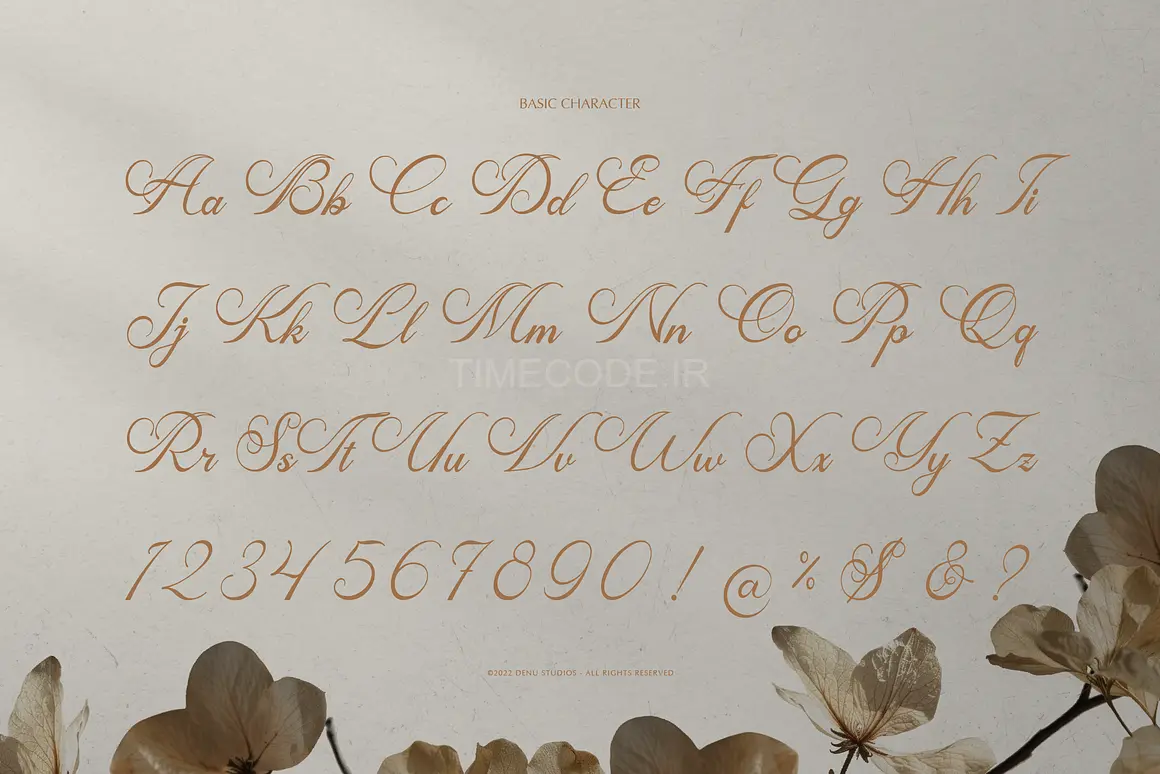 BASIC CHARACTER
Aa Bb Cc Dd Ee Ff Gg Hh Ii
Jj Kk Ll Mm Nn Oo Pp Qq
TIMECODE.IR
Rr Ss Tt Uu Vv Ww Xx Yy Zz
1234567890! @ % $ & ?
©2022 DENU STUDIOS - ALL RIGHTS RESERVED